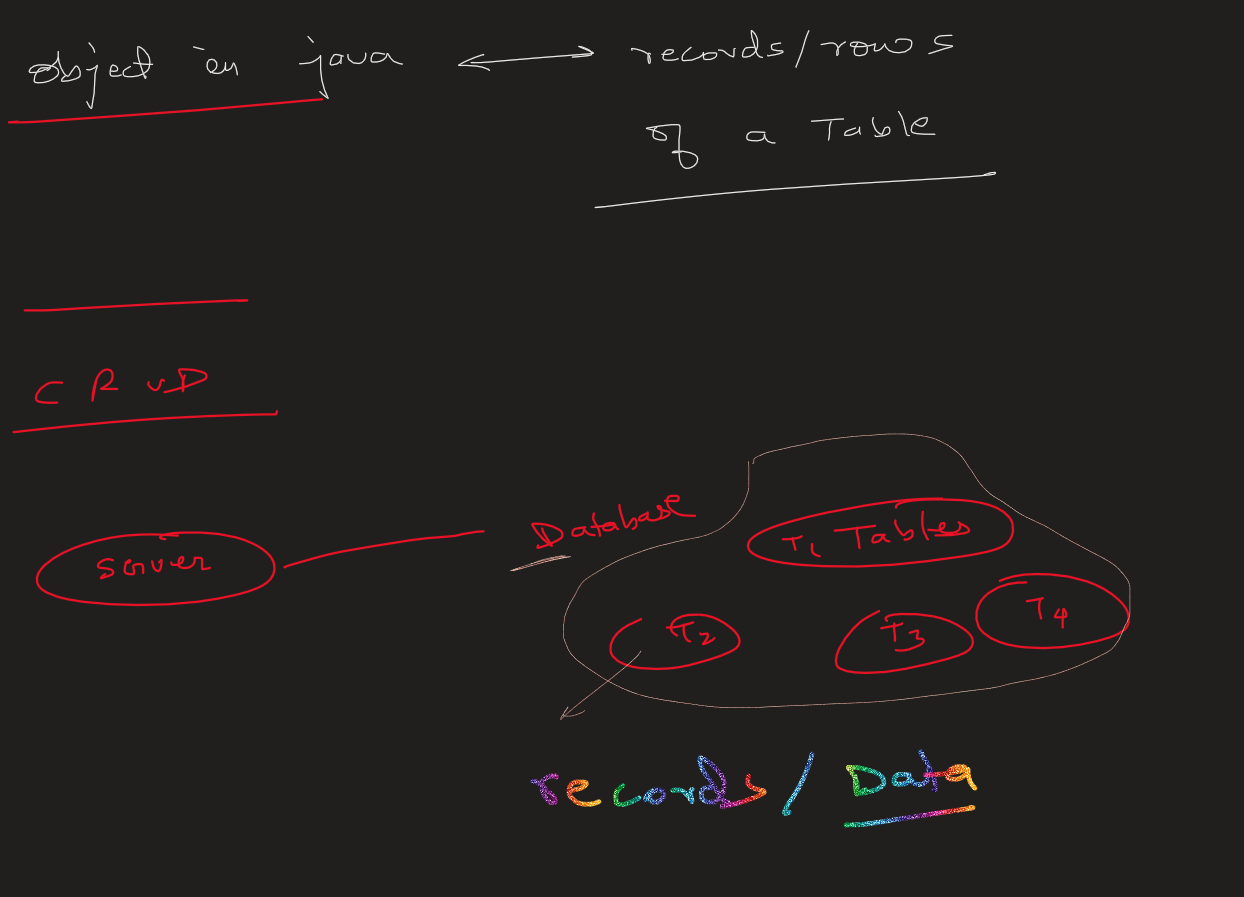 object in java ⟷ records/rows
of a Table
C R U D
Server
Database
T1 Tables
T2
T3
T4
records/Data